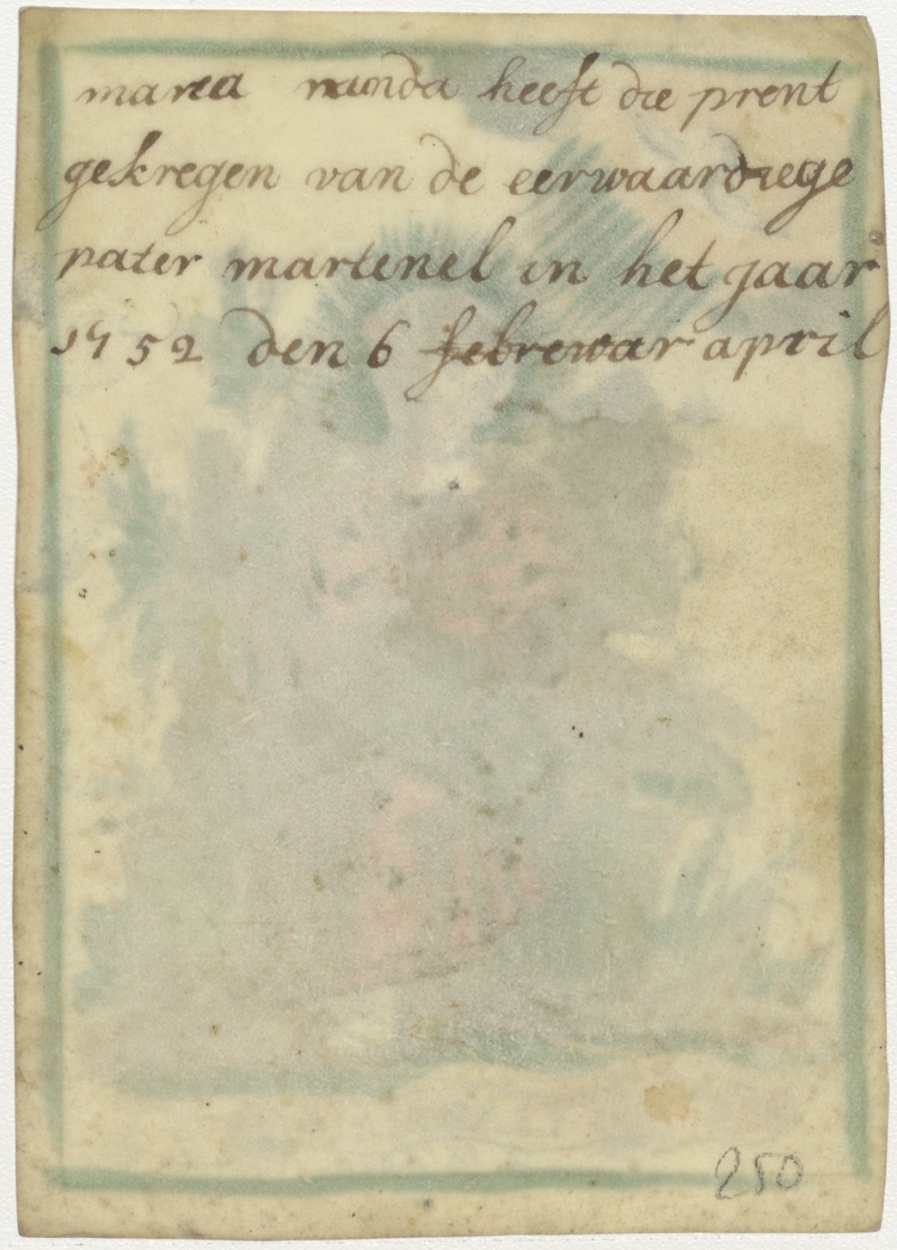 maria nanda heeft die prent
gekregen van de eerwaardiege
pater martenel in het jaar
1752 den 6 febrewar april
250